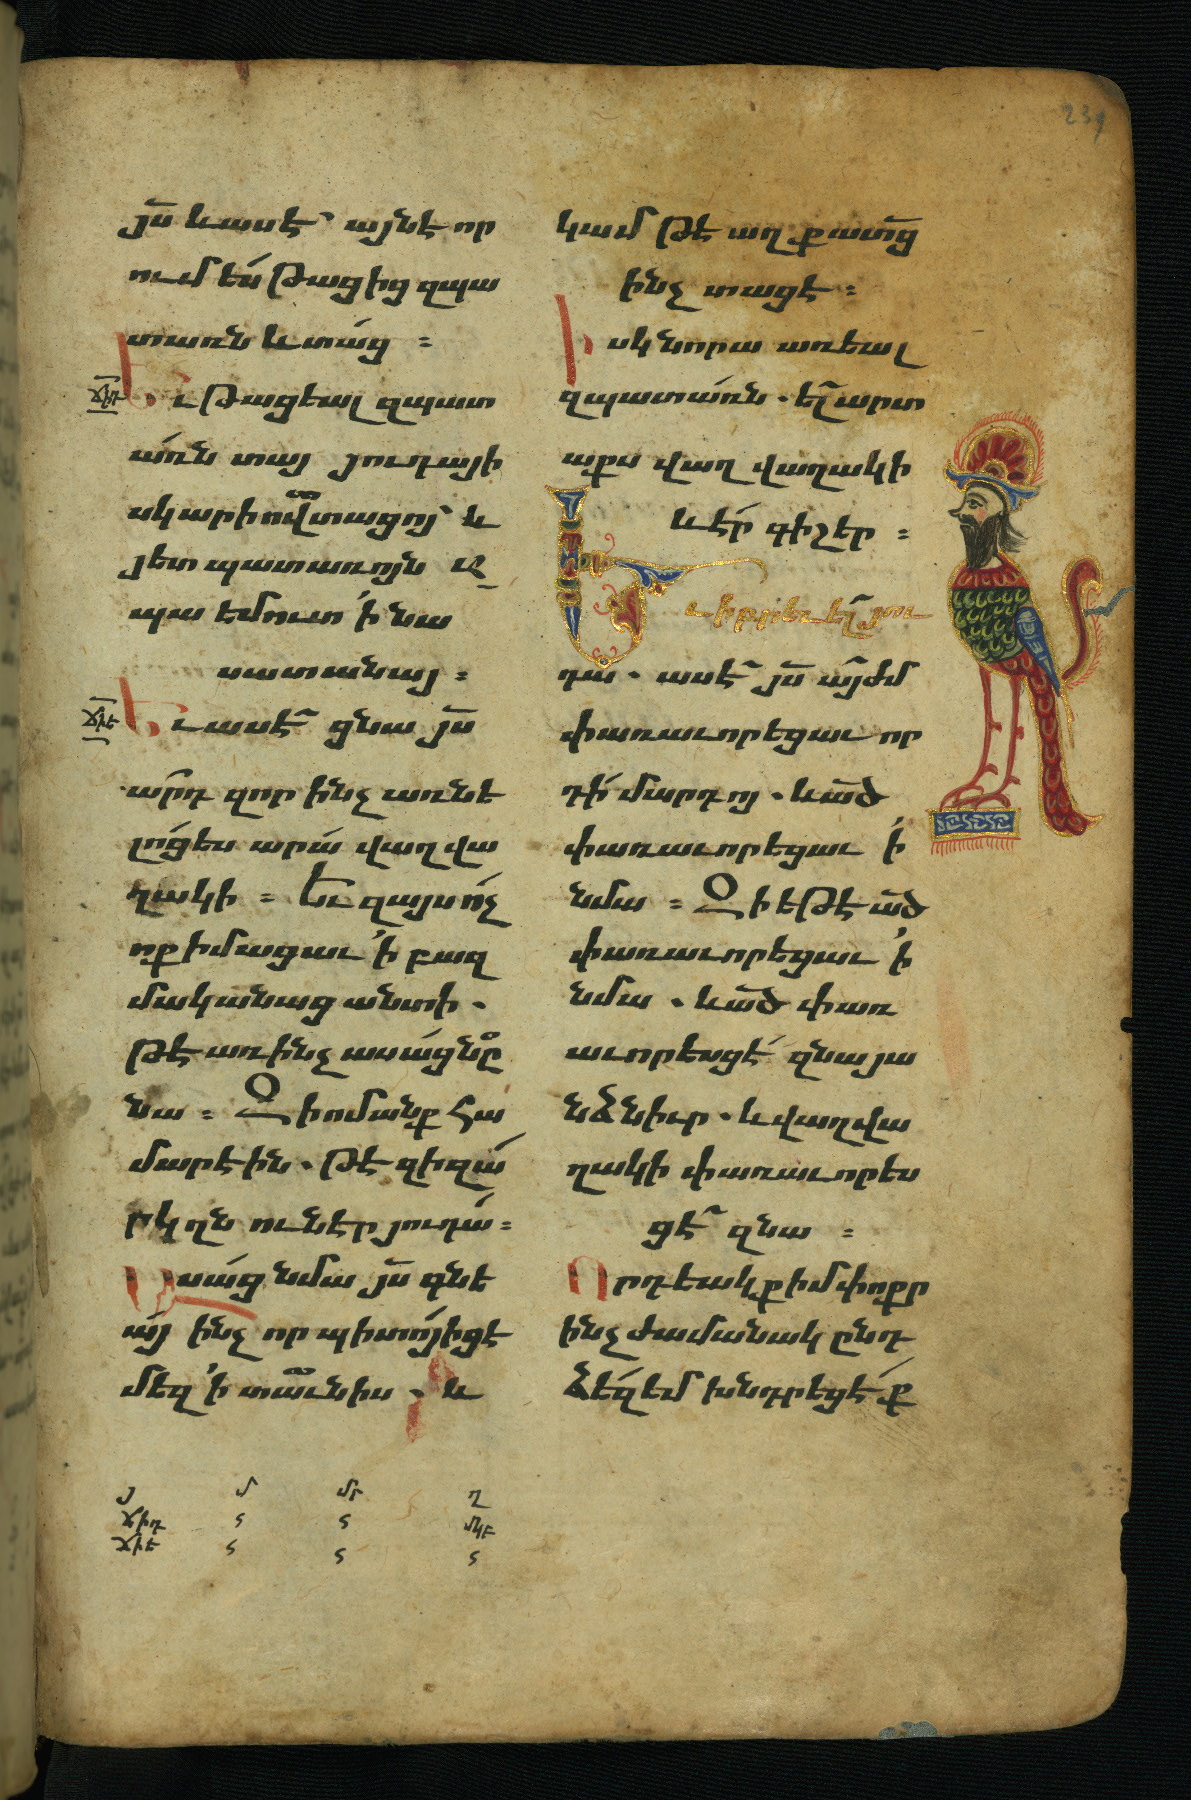 239
յս̄ և ասէ՝ այնէ որ
ում ես թացից զպա
տառն և տաց ։
ՃԻԴ
Եւ թացեալ զպատ
առն տայ յուդայի
սկարիովտացոյ՝ և
յետ պատառոյն ա
պա եմուտ ՛ի նա
սատանայ ։
ՃԻԵ
Եւ ասէ ցնա յս̄
արդ զոր ինչ առնե
լոցես արա վաղվա
ղակի ։ Եւ զայս ոչ
ոք իմացաւ ՛ի բազ
մականաց անտի .
թէ առ ինչ ասաց ցնը
նա ։ Զի ոմանք հա
մարէին . թէ զի զա
րկղն ունէր յուդա ։
Ասաց նմա յս̄ գնե
այ ինչ որ պիտոյիցէ
մեզ ՛ի տաւնիս . և
կամ թէ աղքատց
ինչ տացէ ։
Իսկ նորա առեալ
զպատառն . ել արտ
աքս վաղվաղակի
և էր գիշեր ։
Եւ իբրեւ ել յու
դա . ասէ յս̄ այժմ
փառաւորեցաւ որ
դի մարդոյ . և ա̄ծ
փառաւորեցաւ ՛ի
նմա ։ Զի եթէ ա̄ծ
փառաւորեցաւ ՛ի
նմա . և ա̄ծ փառ
աւորեսցէ զնա յա
նձնիւր . և վաղվա
ղակի փառաւորես
ցէ զնա ։
Որդեակք իմ փոքր
ինչ ժամանակ ընդ
ձեզ եմ խնդրեցէք
Յ Մ ՄՐ Ղ
ՃԻԴ Տ Տ
ՃԻԵ Տ Տ Տ